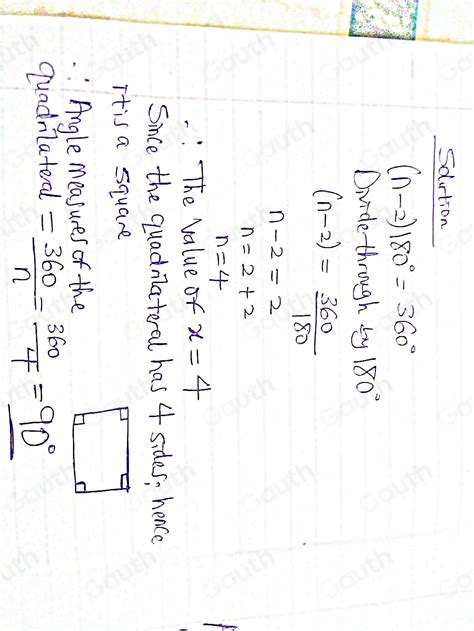 Solution
(n-2)180° = 360°
Divide through by 180°
(n-2) = 360/180
n-2 = 2
n = 2+2
n = 4
∴ The value of x = 4
Since the quadrilateral has 4 sides; hence
it is a square
∴ Angle measures of the
quadrilateral = 360/n = 360/4 = 90°
Gauth